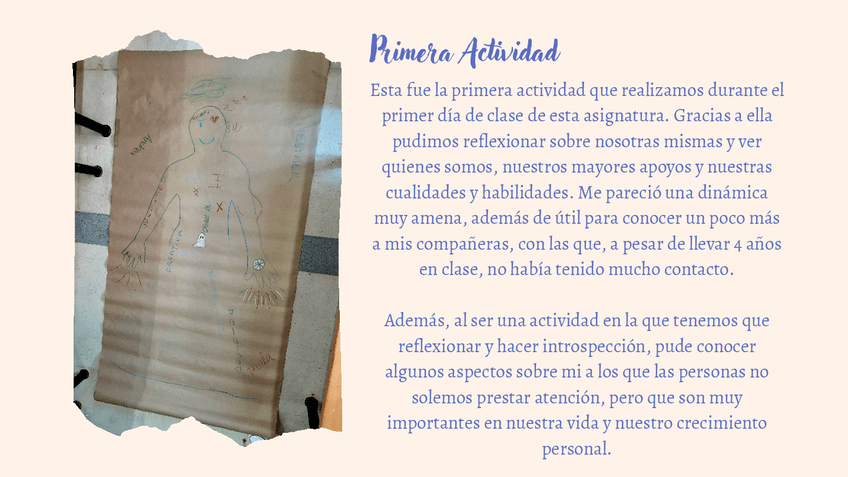 Primera Actividad
Esta fue la primera actividad que realizamos durante el
primer día de clase de esta asignatura. Gracias a ella
pudimos reflexionar sobre nosotras mismas y ver
quienes somos, nuestros mayores apoyos y nuestras
cualidades y habilidades. Me pareció una dinámica
muy amena, además de útil para conocer un poco más
a mis compañeras, con las que, a pesar de llevar 4 años
en clase, no había tenido mucho contacto.
Además, al ser una actividad en la que tenemos que
reflexionar y hacer introspección, pude conocer
algunos aspectos sobre mi a los que las personas no
solemos prestar atención, pero que son muy
importantes en nuestra vida y nuestro crecimiento
personal.